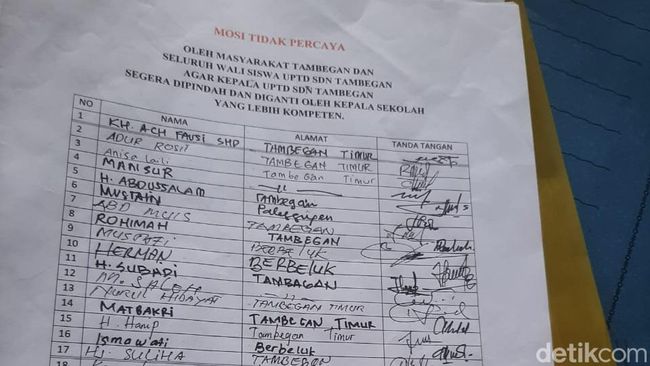 MOSI TIDAK PERCAYA
OLEH MASYARAKAT TAMBEGAN DAN
SELURUH WALI SISWA UPTD SDN TAMBEGAN
AGAR KEPALA UPTD SDN TAMBEGAN
SEGERA DIPINDAH DAN DIGANTI OLEH KEPALA SEKOLAH
YANG LEBIH KOMPETEN.
NO NAMA ALAMAT TANDA TANGAN
1 KH. ACH FAUSI SHD TAMBEGAN TIMUR
2 ADUR ROSIT TAMBEGAN TIMUR
3 Anisa Laili Tambegan Timur
4 MANSUR
5 H. ABDUSSALAM Tambegan
6 MUSTAIN
7 ABD MUIS TAMBEGAN
8 ROHIMAH TAMBEGAN
9 BERBELUK
10 HERMAN BERBELUK
11 H. SUBADI TAMBAGAN
12 M. SALEH
13 NURUL HIDAYAT TAMBEGAN TIMUR
14 MATBAKRI TAMBEGAN TIMUR
15 H. Hanip Tambegan Timur
16 Ismawati Berbeluk
17 Hj. SULIHA TAMBEGAN
18
detikcom